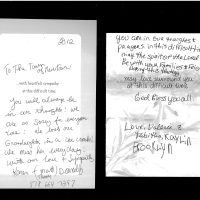 2012
To The Town of Newtown:
...with heartfelt sympathy
at this difficult time.
You will always be
in our thoughts! We
are so sorry for everyone
We lost our
Granddaughter in a car crash
We miss her everyday.
With our love & Sympathy
you are in our thoughts &
prayers in this difficult
may the spirit of the Lord
be with your Families & Friends
during this
may love surround you
at this difficult time.
God Bless you all!
Love,
Kaylin
Brooklyn